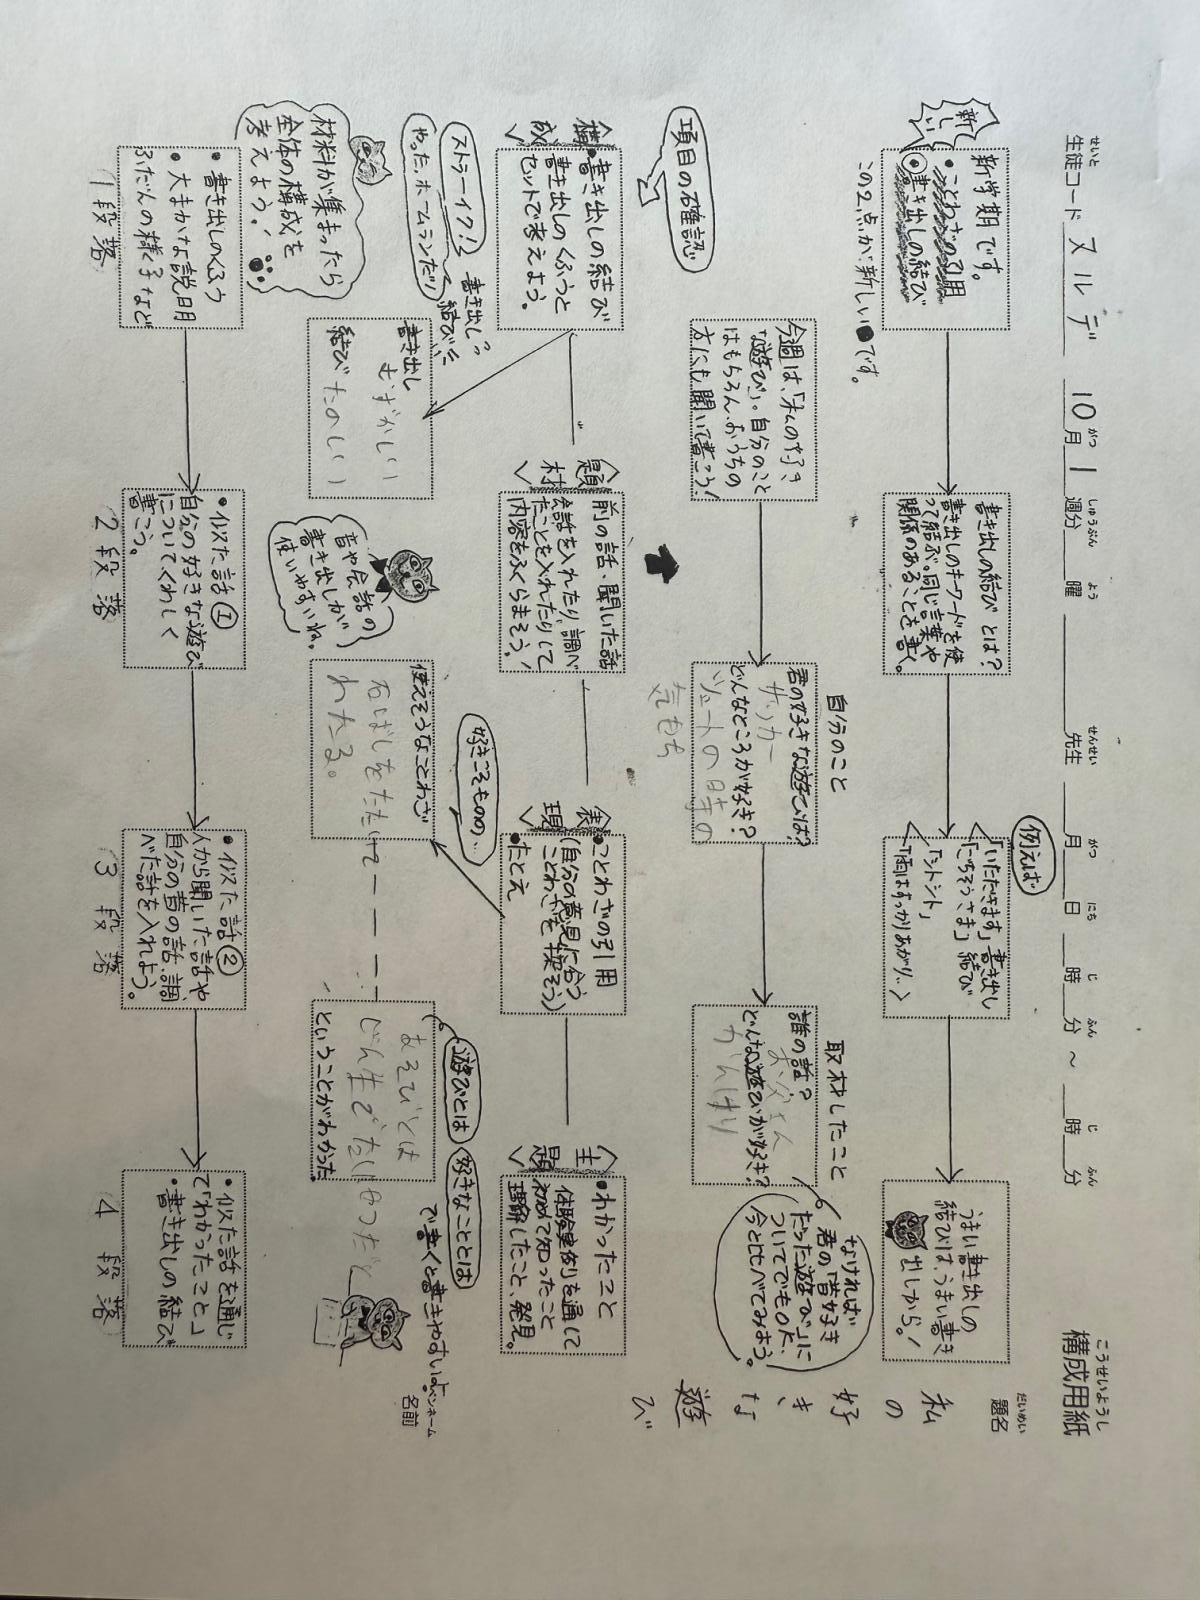 生徒コード ヌルデ 10月1週分 曜 先生 月 日 時 分 ～ 時 分
せいと がつ しゅうぶん よう せんせい がつ にち じ ふん じ ふん
構成用紙
こうせいようし
題名
だいめい
私の好きな遊び
新しい
新学期です。
・ことわざの引用
◉書き出しの結び
この2点が新しい●です。
書き出しの結びとは?
書き出しのキーワードを使
って結ぶ。同じ言葉や
関係のあることを書く。
例えば
「いただきます」書き出し
「ごちそうさま」結び
「シトシト」
「雨はすっかりあがり…」
うまい書き出しの
結びは、うまい書き
出しから。!
今週は、「私の好き
な遊び」。自分のこと
はもちろん、おうちの
方にも聞いて書こう!
自分のこと
君の好きな遊びは?
サッカー
どんなところが好き?
シュートの時の
気もち
取材したこと
誰の話?
お父さん
どんな遊びが好き?
かんけり
なければ
君の「昔好き
だった遊び」に
ついてでもOK、
今と比べてみよう。
項目の確認
〈構成〉
・書き出しの結び
書き出しのくふうと
セットで考えよう。
〈題材〉
前の話・聞いた話
会話を入れたり、調べ
たことを入れたりして
内容をふくらまそう!
〈表現〉
・ことわざの引用
(自分の意見に合う
ことわざを探そう)
・たとえ
〈主題〉
・わかったこと
体験実例を通して
初めて知ったこと
理解したこと、発見。
ストラーイク!! 書き出し
やった、ホームランだ!! 結び
書き出し
むずかしい
結び たのしい
音や会話の
書き出しが
使いやすいね。
好きこそものの…
使えそうなことわざ
石ばしをたたいて
わたる。
遊びとは
好きなこととは
で書くと書きやすいよ
あそびとは
じん生でたいせつだ
ということがわかった。
ペンネーム
名前
材料が集まったら
全体の構成を
考えよう!
・書き出しのくふう
・大まかな説明
ふだんの様子など
1段落
・似た話①
自分の好きな遊び
についてくわしく
書こう。
2段落
・似た話②
人から聞いた話や
自分の昔の話、調
べた話を入れよう。
3段落
・似た話を通じ
て「わかったこと」
・書き出しの結び
4段落